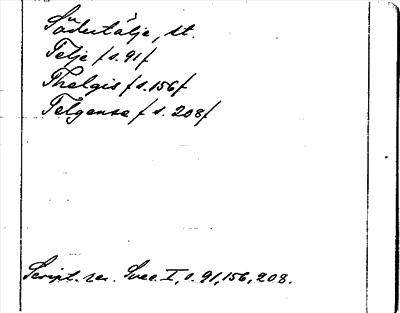 Södertälje, st.
Telje /s. 91/
Thelgis /s. 156/
Telgense /s. 208/
Script. rer. Svec. I, s. 91, 156, 208.